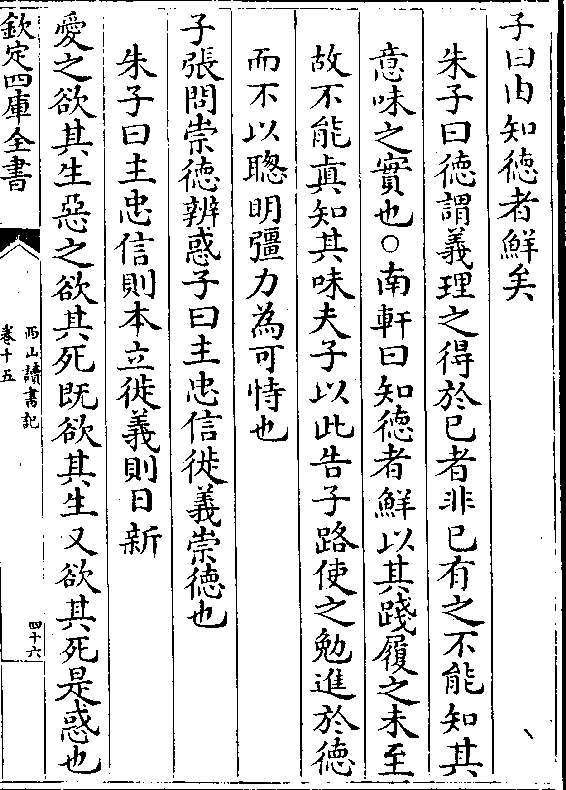 子曰由知徳者鮮矣
朱子曰徳謂義理之得於己者非己有之不能知其
意味之實也○南軒曰知徳者鮮以其踐履之未至
故不能真知其味夫子以此告子路使之勉進於徳
而不以聰明彊力為可恃也
子張問崇徳辨惑子曰主忠信徙義崇徳也
朱子曰主忠信則本立徙義則日新
愛之欲其生惡之欲其死既欲其生又欲其死是惑也
欽定四庫全書
西山讀書記
卷十五
四十六